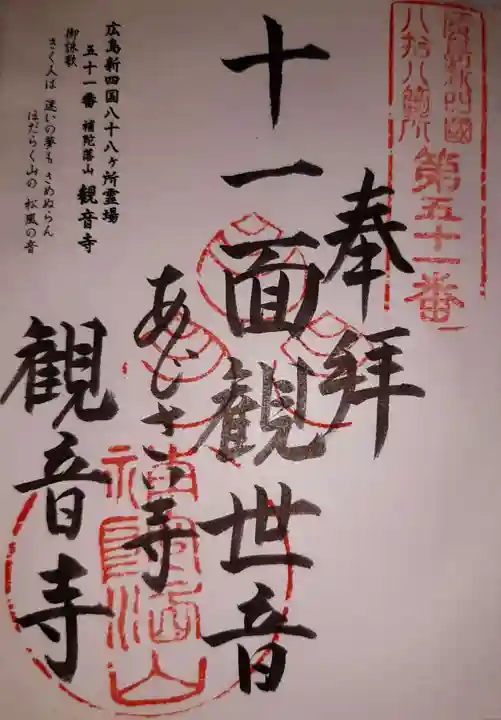 八拾八箇所
第五十一番
奉拝
十一面観世音
あじさい寺
観音寺
広島新四国八十八ヶ所霊場
五十一番 補陀落山 観音寺
御詠歌
きく人は 迷いの夢も さめぬらん
ほだらく山の 松風の音